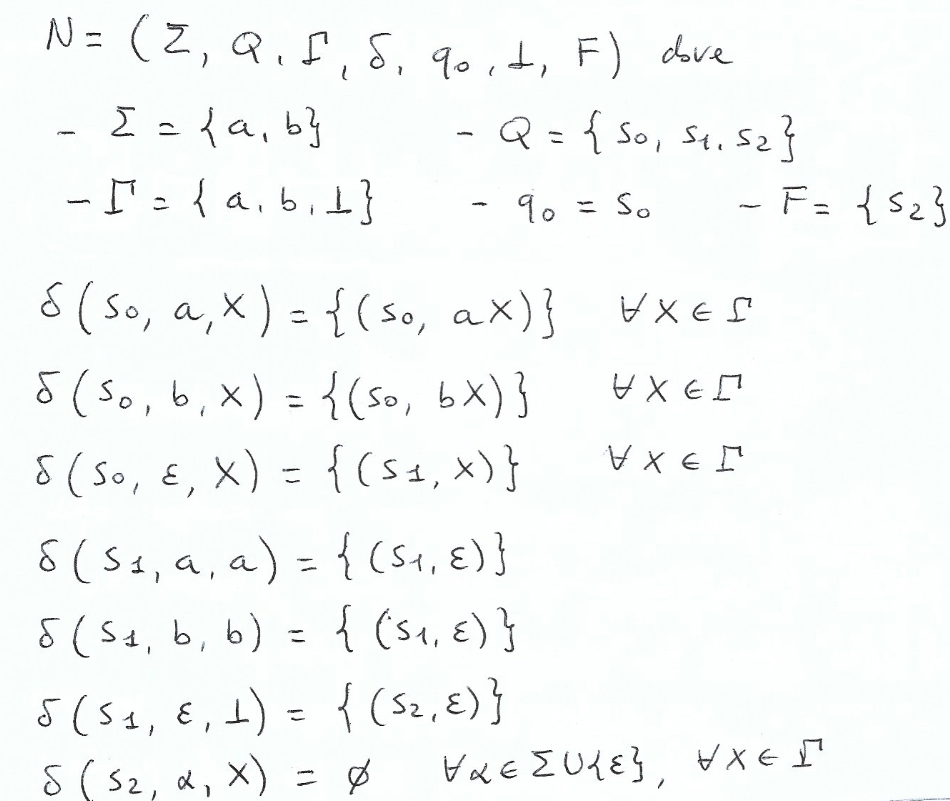 N = (Σ, Q, Γ, δ, q₀, ⊥, F) dove
- Σ = {a, b} - Q = {s₀, s₁, s₂}
- Γ = {a, b, ⊥} - q₀ = s₀ - F = {s₂}
δ(s₀, a, X) = {(s₀, aX)} ∀X ∈ Γ
δ(s₀, b, X) = {(s₀, bX)} ∀X ∈ Γ
δ(s₀, ε, X) = {(s₁, X)} ∀X ∈ Γ
δ(s₁, a, a) = {(s₁, ε)}
δ(s₁, b, b) = {(s₁, ε)}
δ(s₁, ε, ⊥) = {(s₂, ε)}
δ(s₂, α, X) = ∅ ∀α ∈ Σ∪{ε}, ∀X ∈ Γ